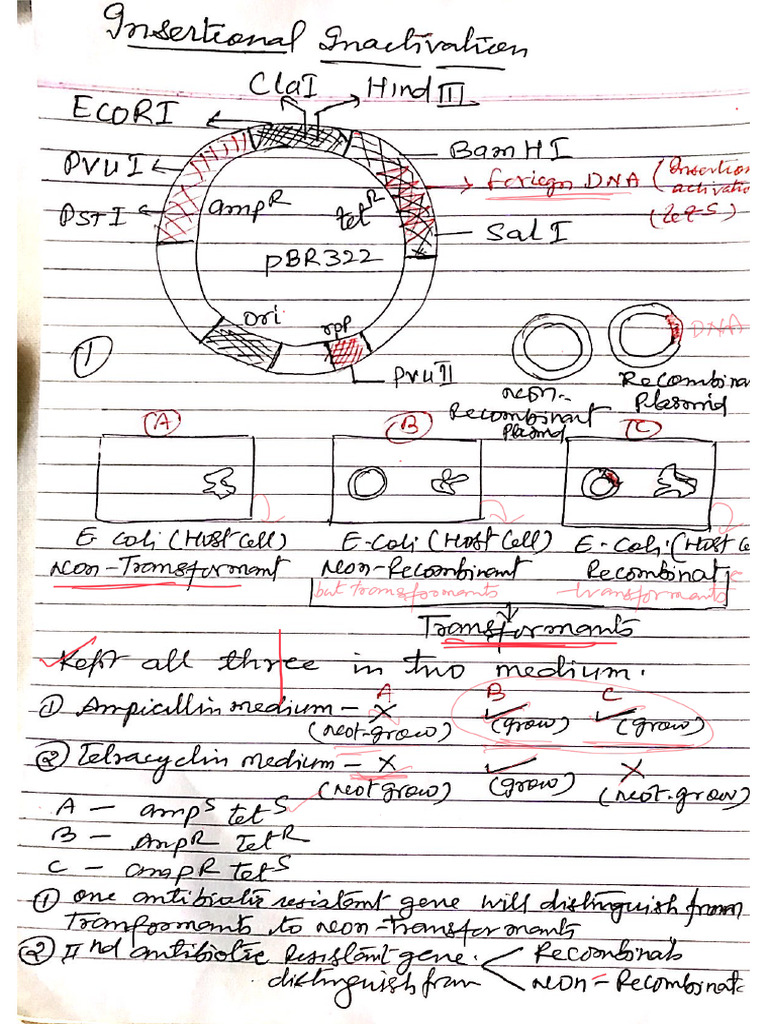 Insertional Inactivation
ClaI HindIII
ECORI
BamHI
PVUI
foriegn DNA (Insertion
activatio
(tet-S)
PSTI
ampR
tetR
SalI
pBR322
ori
rop
①
PvuII
DNA
Non-
Recombinant
Plasmid
Recombinan
Plasmid
(A) (B) (C)
E coli (Host Cell) E-coli (Host Cell) E-coli (Host Ce
Non-Transformant Non-Recombinant Recombinat
but transformants transformants
Transformants
Kept all three in two medium.
A B C
① Ampicillin medium - X ✓ ✓
(not-grow) (grow) (grow)
② Tetracyclin medium - X ✓ X
(not grow) (grow) (not-grow)
A - ampS tetS
B - AmpR TetR
C - ampR tetS
① one antibiotic resistant gene will distinguish from
Transformants to non-transformants
② IInd antibiotic resistant gene. Recombinats
distinguish from Non-Recombinats